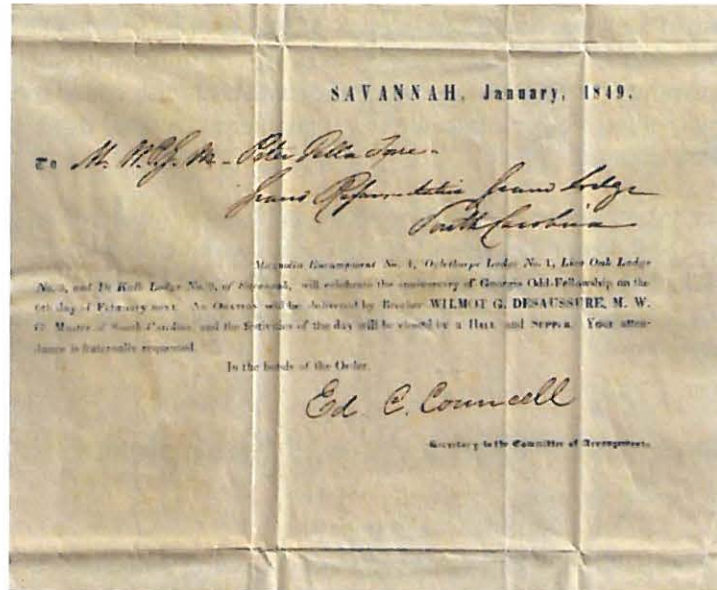 SAVANNAH, January, 1849.
To M. W. P. G. M. Peter Della Torre.
Grand Representative Grand Lodge
South Carolina
Magnolia Encampment No. 1, Oglethorpe Lodge No. 1, Live Oak Lodge
No. 3, and De Kalb Lodge No. 9, of Savannah, will celebrate the anniversary of Georgia Odd-Fellowship on the
6th day of February next. An ORATION will be delivered by Brother WILMOT G. DESAUSSURE, M. W.
G. Master of South-Carolina, and the festivities of the day will be closed by a BALL and SUPPER. Your atten-
dance is fraternally requested.
In the bonds of the Order.
Ed C. Councell
Secretary to the Committee of Arrangements.